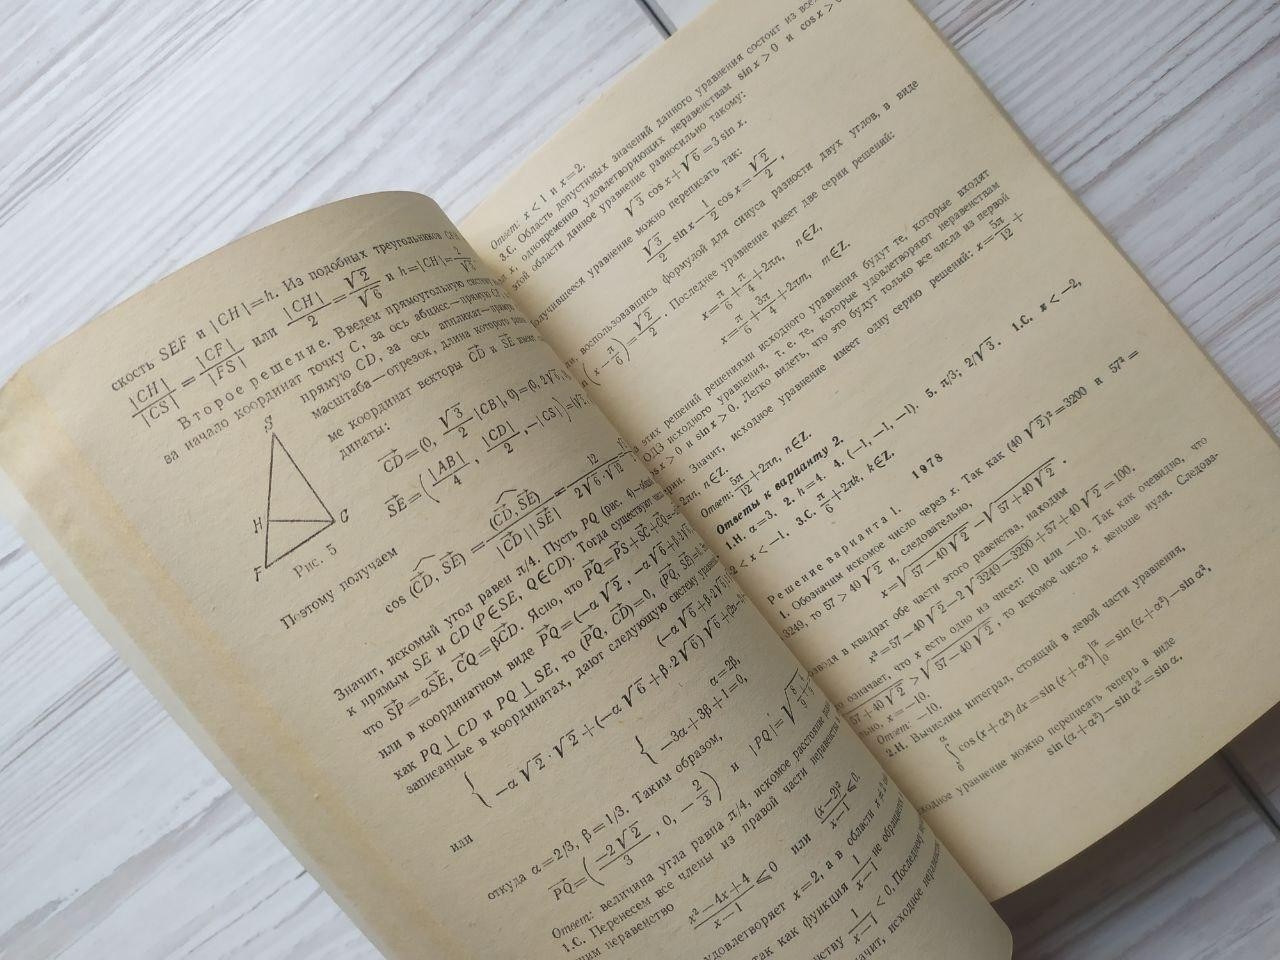 скость SEF и |CH|=h. Из подобных треугольников
|CH|/|CS| = |CF|/|FS| или |CH|/2 = √2/√6 и h=|CH|=2/√
Второе решение. Введем прямоугольную систему
начало координат точку C, за ось абсцисс—прямую CF,
прямую CD, за ось аппликат—прямую
масштаба—отрезок, длина которого равна
ме координат векторы CD⃗ и SE⃗ имеют
динаты:
CD⃗=(0, √3/2 |CB|, 0)=(0, 2√6,
SE⃗=(|AB|/4, |CD|/2, —|CS|)=(√2,
S
H
C
F
Рис. 5
Поэтому получаем
cos (CD⃗, SE⃗)= (CD⃗, SE⃗)/|CD⃗||SE⃗| = 12/2√6·√12
Значит, искомый угол равен π/4. Пусть PQ (рис. 4)—общий
к прямым SE и CD (P∈SE, Q∈CD). Тогда существуют числа
что SP⃗=αSE⃗, CQ⃗=βCD⃗. Ясно, что PQ⃗=PS⃗+SC⃗+CQ⃗=
или в координатном виде PQ⃗=(—α√2, —α√6+β·2√6,
как PQ⊥CD и PQ⊥SE, то (PQ⃗, CD⃗)=0, (PQ⃗, SE⃗)=0,
записанные в координатах, дают следующую систему уравнений
(—α√6+β·2√6)
{ —α√2·√2+(—α√6+β·2√6)√6+(2α—
или
{ α=2β,
—3α+3β+1=0,
откуда α=2/3, β=1/3. Таким образом,
PQ⃗=(—2√2/3, 0, —2/3) и |PQ|=√8/9
Ответ: величина угла равна π/4, искомое расстояние
1.С. Перенесем все члены из правой части неравенства
чим неравенство
x²—4x+4/x—1 ⩽0 или (x—2)²/x—1 ⩽0.
удовлетворяет x=2, а в области x≠2
так как функция 1/x—1 не обращается
1/x—1 <0. Последнему
исходное
Ответ: x<1 и x=2.
3.С. Область допустимых значений данного уравнения состоит из всех
x, одновременно удовлетворяющих неравенствам sin x>0 и cos x>0
этой области данное уравнение равносильно такому:
√3 cos x+√6=3 sin x.
Получившееся уравнение можно переписать так:
√3/2 sin x—1/2 cos x=√2/2,
воспользовавшись формулой для синуса разности двух углов, в виде
(x—π/6)=√2/2. Последнее уравнение имеет две серии решений:
x=π/6+π/4+2πn, n∈Z,
x=π/6+3π/4+2πm, m∈Z.
этих решений решениями исходного уравнения будут те, которые входят
ОДЗ исходного уравнения, т. е. те, которые удовлетворяют неравенствам
cos x>0 и sin x>0. Легко видеть, что это будут только все числа из первой
серии. Значит, исходное уравнение имеет одну серию решений: x=5π/12+
2πn, n∈Z.
Ответ: 5π/12+2πn, n∈Z.
Ответы к варианту 2.
1.Н. α=3. 2. h=4. 4. (—1, —1, —1). 5. π/3; 2/√3. 1.С. x<—2,
—2<x<—1. 3.С. π/6+2πk, k∈Z.
1978
Решение варианта 1.
1. Обозначим искомое число через x. Так как (40√2)²=3200 и 57²=
3249, то 57>40√2 и, следовательно,
x=√57—40√2—√57+40√2.
Возводя в квадрат обе части этого равенства, находим
x²=57—40√2—2√3249—3200+57+40√2=100.
означает, что x есть одно из чисел: 10 или —10. Так как очевидно, что
√57+40√2>√57—40√2, то искомое число x меньше нуля. Следова-
тельно, x=—10.
Ответ: —10.
2.Н. Вычислим интеграл, стоящий в левой части уравнения,
∫ cos (x+α²) dx=sin (x+α²)|=sin (α+α²)—sin α²,
α
0
α
0
исходное уравнение можно переписать теперь в виде
sin (α+α²)—sin α²=sin α.